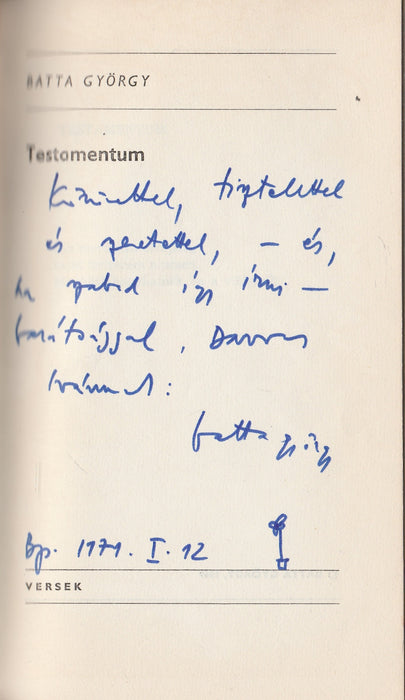 BATTA GYÖRGY
Testomentum
Köszönettel, tisztelettel
és szeretettel, – és,
ha szabad így írni –
barátsággal,
Ivánnak:
batta györgy
Bp. 1979. I. 12
VERSEK